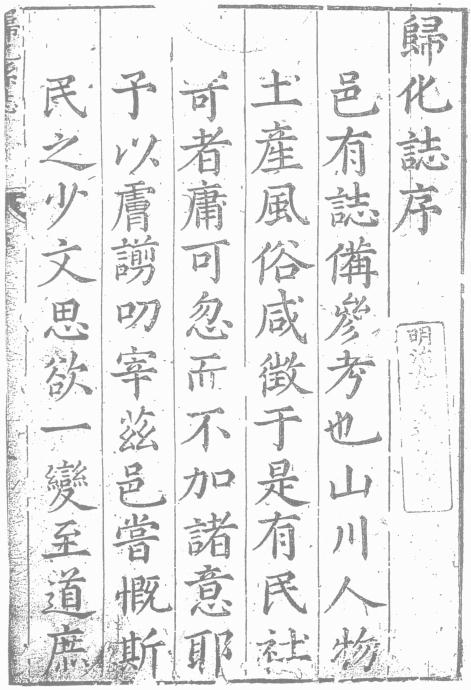 歸化誌序
邑有誌備參考也山川人物
土產風俗咸徵于是有民社
可者庸可忽而不加諸意耶
予以膚謭叨宰茲邑嘗慨斯
民之少文思欲一變至道庶